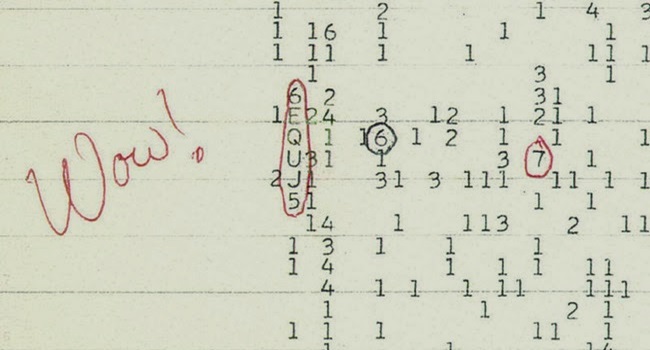 1 2 1 4 3
1 16 1 1 1
1 11 1 1 11 1
1 3 1
6 2 31
1 E 24 3 12 1 21 1
Wow! Q 1 16 1 2 1 1 1
U 31 1 3 7 1
2 J 1 31 3 111 11 1 1
5 1 1 1
14 1 113 2 11
1 3 1 1 1
1 4 1 1 1 11
4 1 1 1 11 111
1 1 2 1
1 1 1 11 1